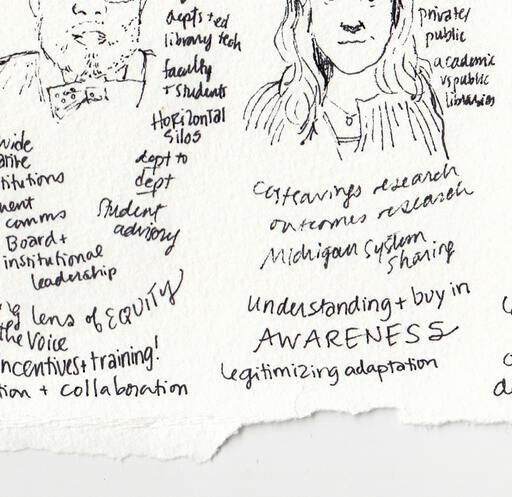 depts + ed
library tech
faculty
+ students
Horizontal
silos
dept to
dept
Student
advisory
wide
titutions
ment
comms
Board +
institutional
leadership
lens of EQUITY
the Voice
incentives + training!
tion + collaboration
private/
public
academic
vs public
libraries
research
outcomes research
Michigan System
Sharing
Understanding + buy in
AWARENESS
Legitimizing adaptation